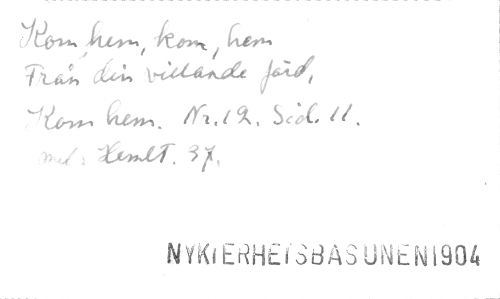 Kom, hem, kom, hem
Från din villande färd,
Kom hem. Nr. 12. Sid. 11.
mel: Hemlt. 37.
NYKTERHETSBASUNEN1904